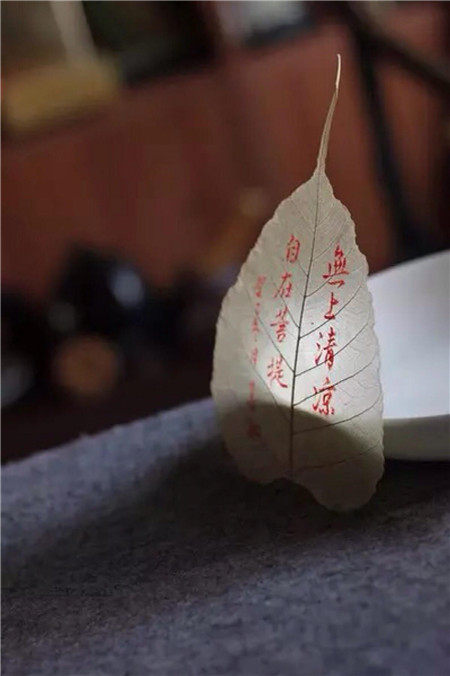 無上清凉
自在菩提